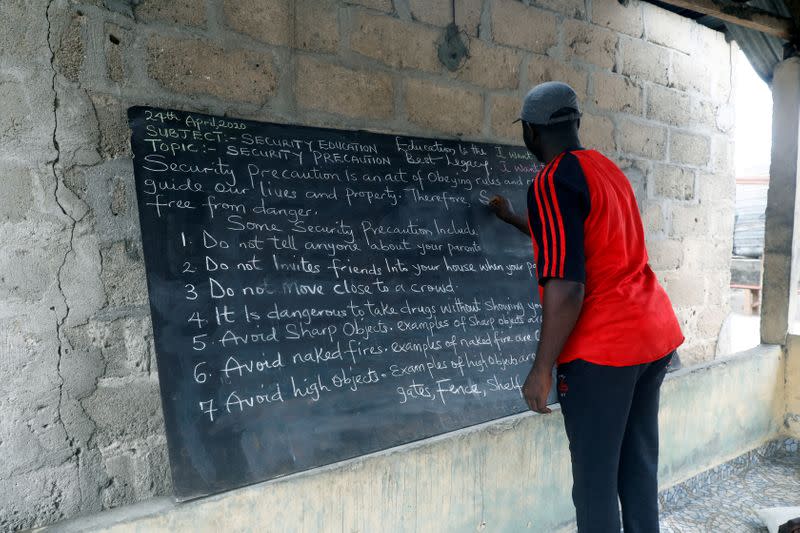 24th April, 2020
SUBJECT:- SECURITY EDUCATION Education Is the I want
TOPIC:- SECURITY PRECAUTION Best Legacy. I want
Security Precaution Is an act of Obeying rules and
guide our lives and property. Therefore, S
free from danger.
Some Security Precaution Include:
1. Do not tell anyone about your parents
2. Do not Invites friends Into your house when your
3. Do not Move close to a crowd.
4. It Is dangerous to take drugs without Showing
5. Avoid Sharp Objects. examples of Sharp objects are
6. Avoid naked fires. examples of naked fire are
7. Avoid high Objects. Examples of high Objects are
gates, Fence, Shelf